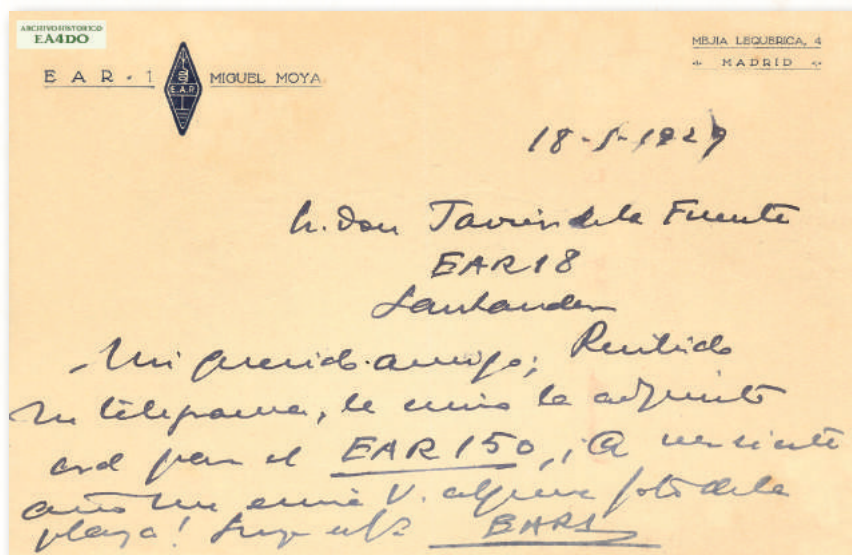 ARCHIVO HISTORICO
EA4DO
E A R - 1
E.A.R.
MIGUEL MOYA
MEJIA LEQUERICA, 4
MADRID
18-5-1929
Sr. Don Javier de la Fuente
EAR18
Santander
Mi querido amigo; Recibido
su telegrama, le envio la adjunta
para el EAR 150, ¡A ver si este
año me envia V. alguna foto de la
playa! EAR1